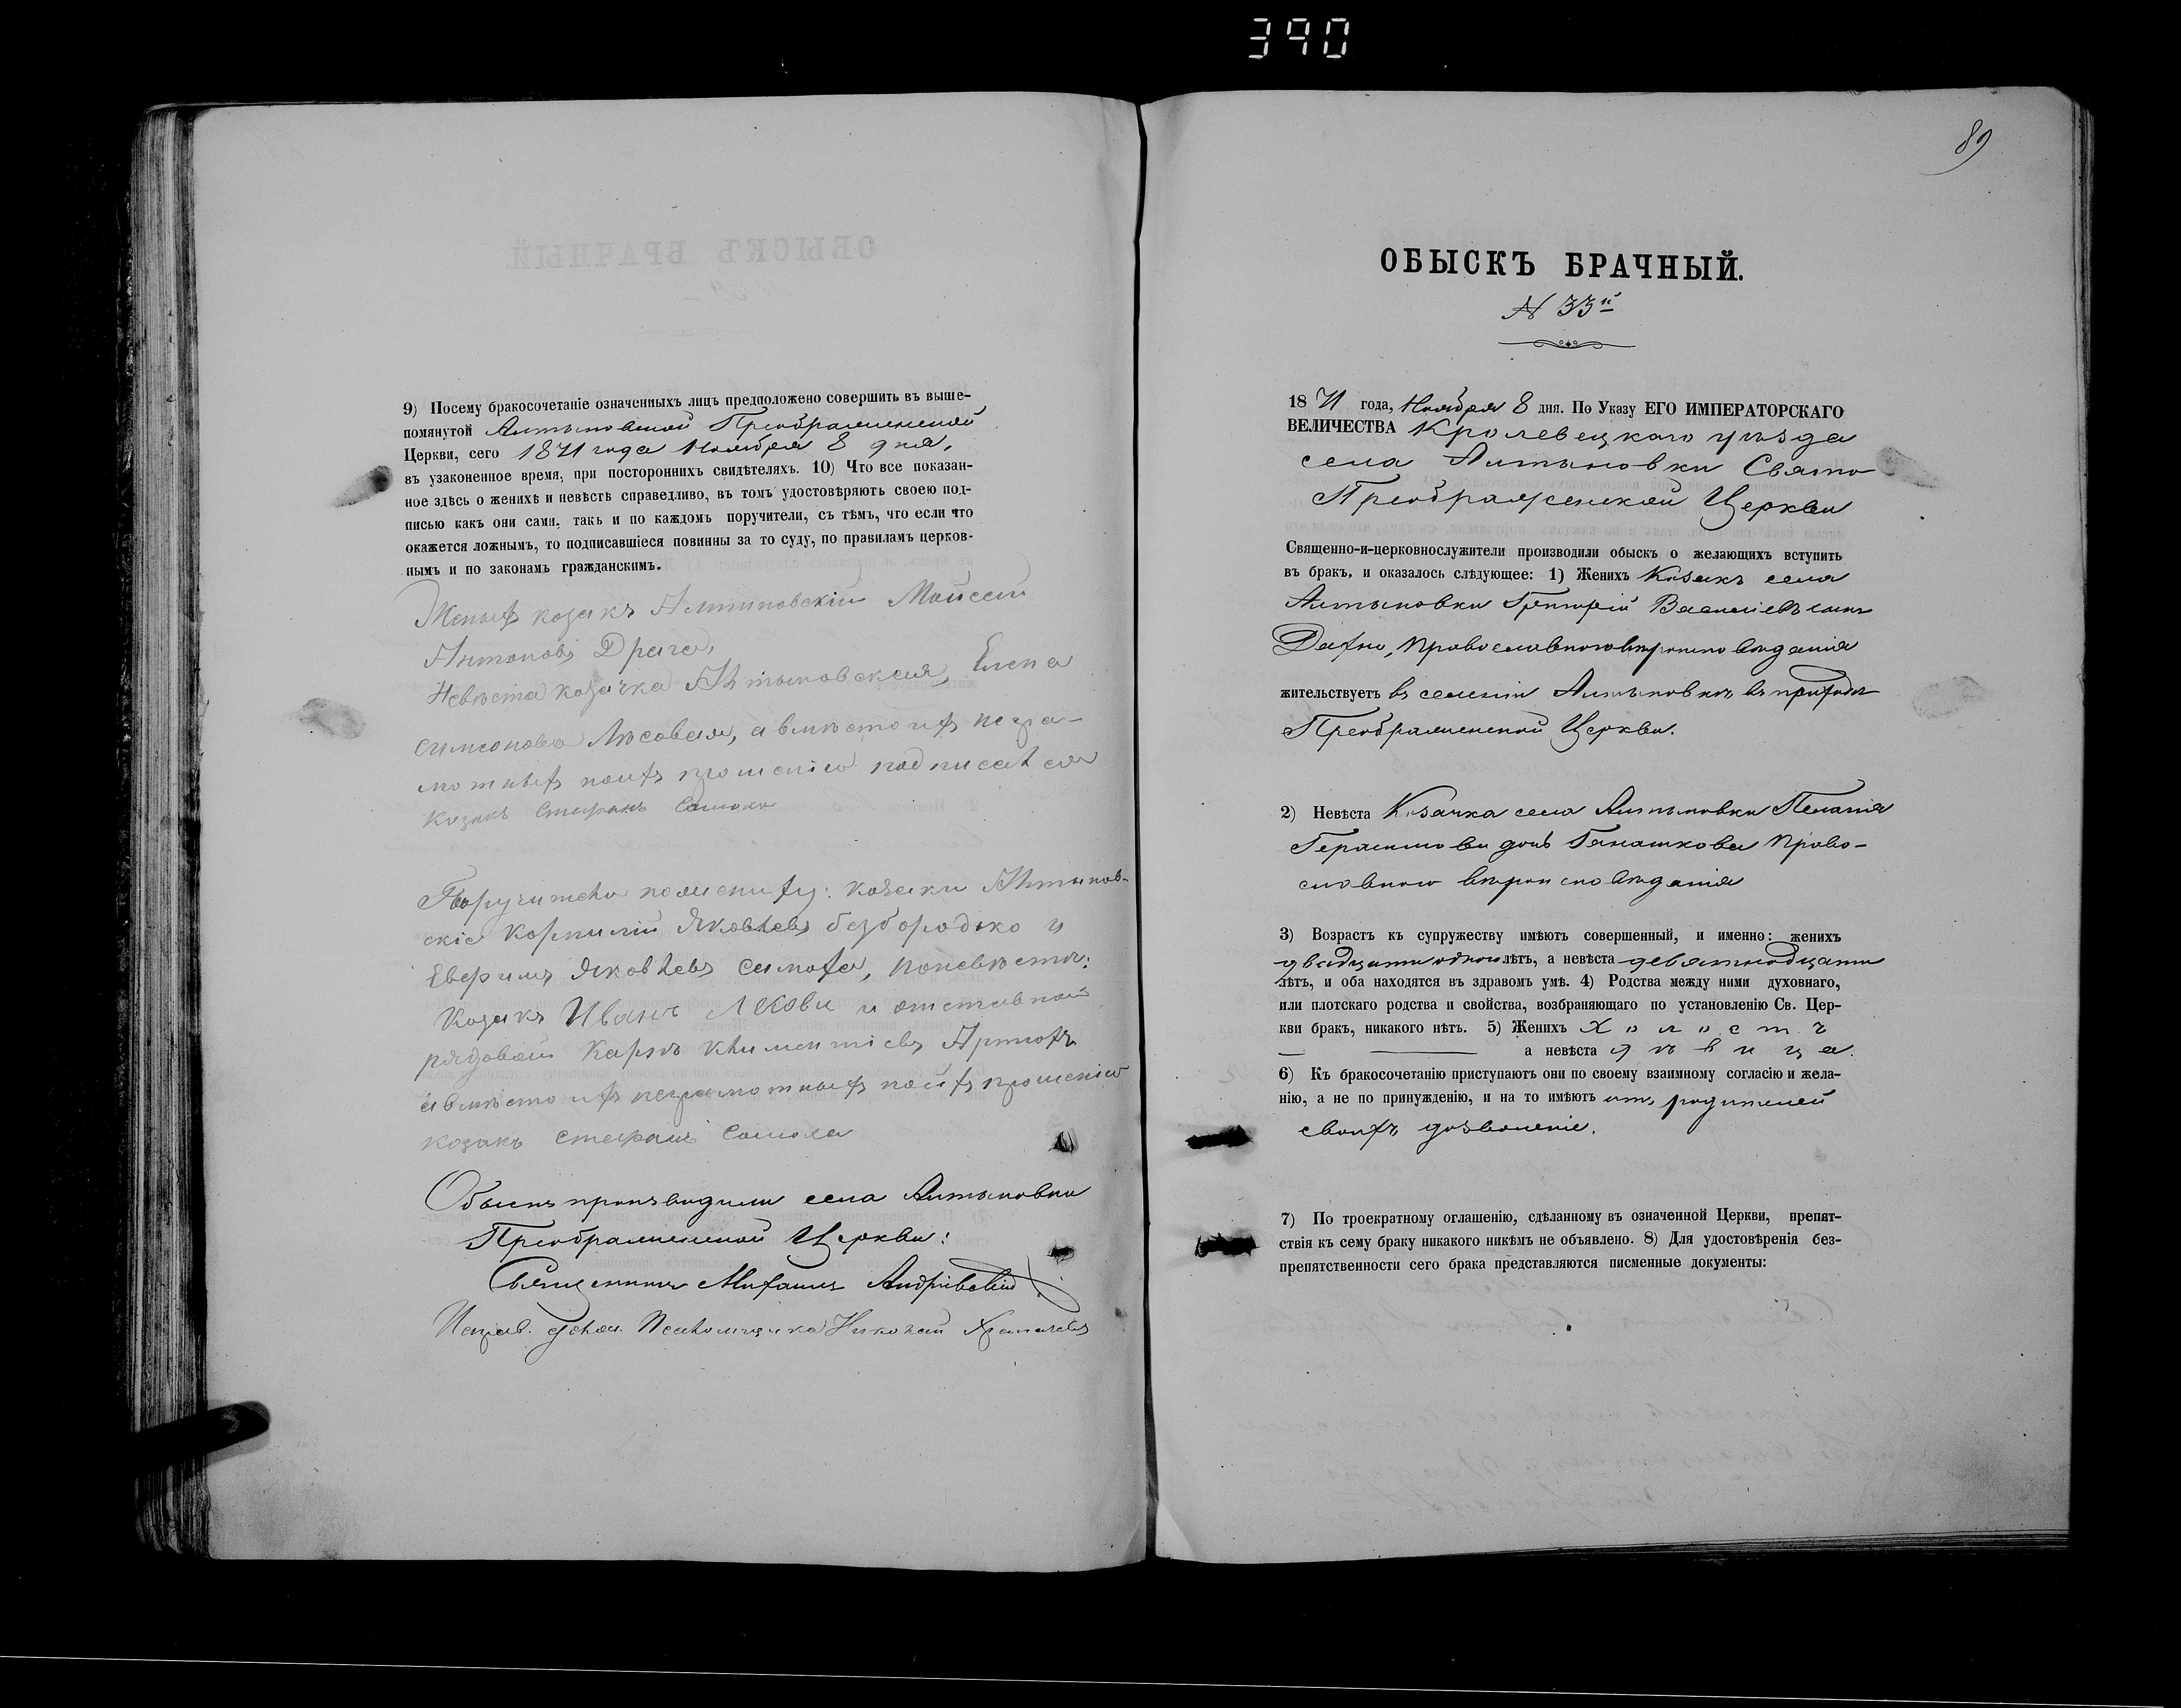 390
9) Посему бракосочетаніе означенныхъ лицъ предположено совершить въ выше-
помянутой Алтыновской Преображенской
Церкви, сего 1871 года Ноября 8 дня,
въ узаконенное время, при постороннихъ свидѣтеляхъ. 10) Что все показан-
ное здѣсь о женихѣ и невѣстѣ справедливо, въ томъ удостовѣряютъ своею под-
писью какъ они сами, такъ и по каждомъ поручители, съ тѣмъ, что если что
окажется ложнымъ, то подписавшіеся повинны за то суду, по правиламъ церков-
нымъ и по законамъ гражданскимъ.
Женихъ козакъ Алтиновскій Мойсей
Антоновъ Драга,
Невѣста козачка Алтыновская, Елена
Симсонова Лѣсовая, а вмѣсто ихъ негра-
мотныхъ поихъ прошенію подписался
козакъ Стефанъ Самоха
Поручители пожениху: козаки Алтынов-
скіе Корнилій Яковлевъ безбородько и
Яковлевъ Симоха, поневѣсте:
козакъ Иванъ и отставной
рядовой Карпъ Климентіевъ Артюхъ
авмѣсто ихъ неграмотныхъ поихъ прошенію
козакъ Стефанъ Самоха
Обыскъ производили села Алтыновки
Преображенской Церкви:
Священникъ Михаилъ Андріевскій
Исправ. должн. Псаломщика Николай
89
ОБЫСКЪ БРАЧНЫЙ.
№ 33й
1871 года, Ноября 8 дня. По Указу ЕГО ИМПЕРАТОРСКАГО
ВЕЛИЧЕСТВА Кролевецкаго уѣзда
села Алтыновки Свято
Преображенской Церкви
Священно-и-церковнослужители производили обыскъ о желающихъ вступить
въ бракъ, и оказалось слѣдующее: 1) Женихъ Козакъ села
Алтыновки Григорій Василіевъ сынъ
Дахно, Православнаго вѣроисповѣданія
жительствуетъ въ селеніи Алтыновкѣ въ приходѣ
Преображенской Церкви.
2) Невѣста Козачка села Алтыновки Пелагія
Герасимова дочь Ганашкова Право-
славнаго вѣроисповѣданія
3) Возрастъ къ супружеству имѣютъ совершенный, и именно: женихъ
двадцати одного лѣтъ, а невѣста девятнадцати
лѣтъ, и оба находятся въ здравомъ умѣ. 4) Родства между ними духовнаго,
или плотскаго родства и свойства, возбраняющаго по установленію Св. Цер-
кви бракъ, никакого нѣтъ. 5) Женихъ Холостъ
а невѣста дѣвица.
6) Къ бракосочетанію приступаютъ они по своему взаимному согласію и жела-
нію, а не по принужденію, и на то имѣютъ отъ родителей
своихъ дозволеніе.
7) По троекратному оглашенію, сдѣланному въ означенной Церкви, препят-
ствія къ сему браку никакого никѣмъ не объявлено. 8) Для удостовѣренія без-
препятственности сего брака представляются писменные документы: